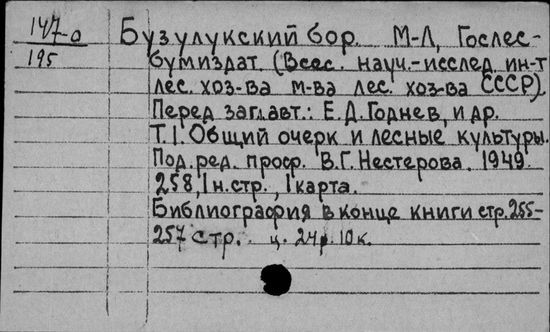 147-а
195
Бузулукский бор. М-Л, Гослес-
бумиздат. (Всес. науч.-исслед. ин-т
лес. хоз-ва м-ва лес. хоз-ва СССР).
Перед загл.авт.: Е.Д.Годнев, и др.
Т.1. Общий очерк и лесные культуры.
Под.ред. проф. В.Г.Нестерова. 1949.
258, 1 н.стр., 1 карта.
Библиография в конце книги стр.255-
257 стр. ц. 24р. 10к.